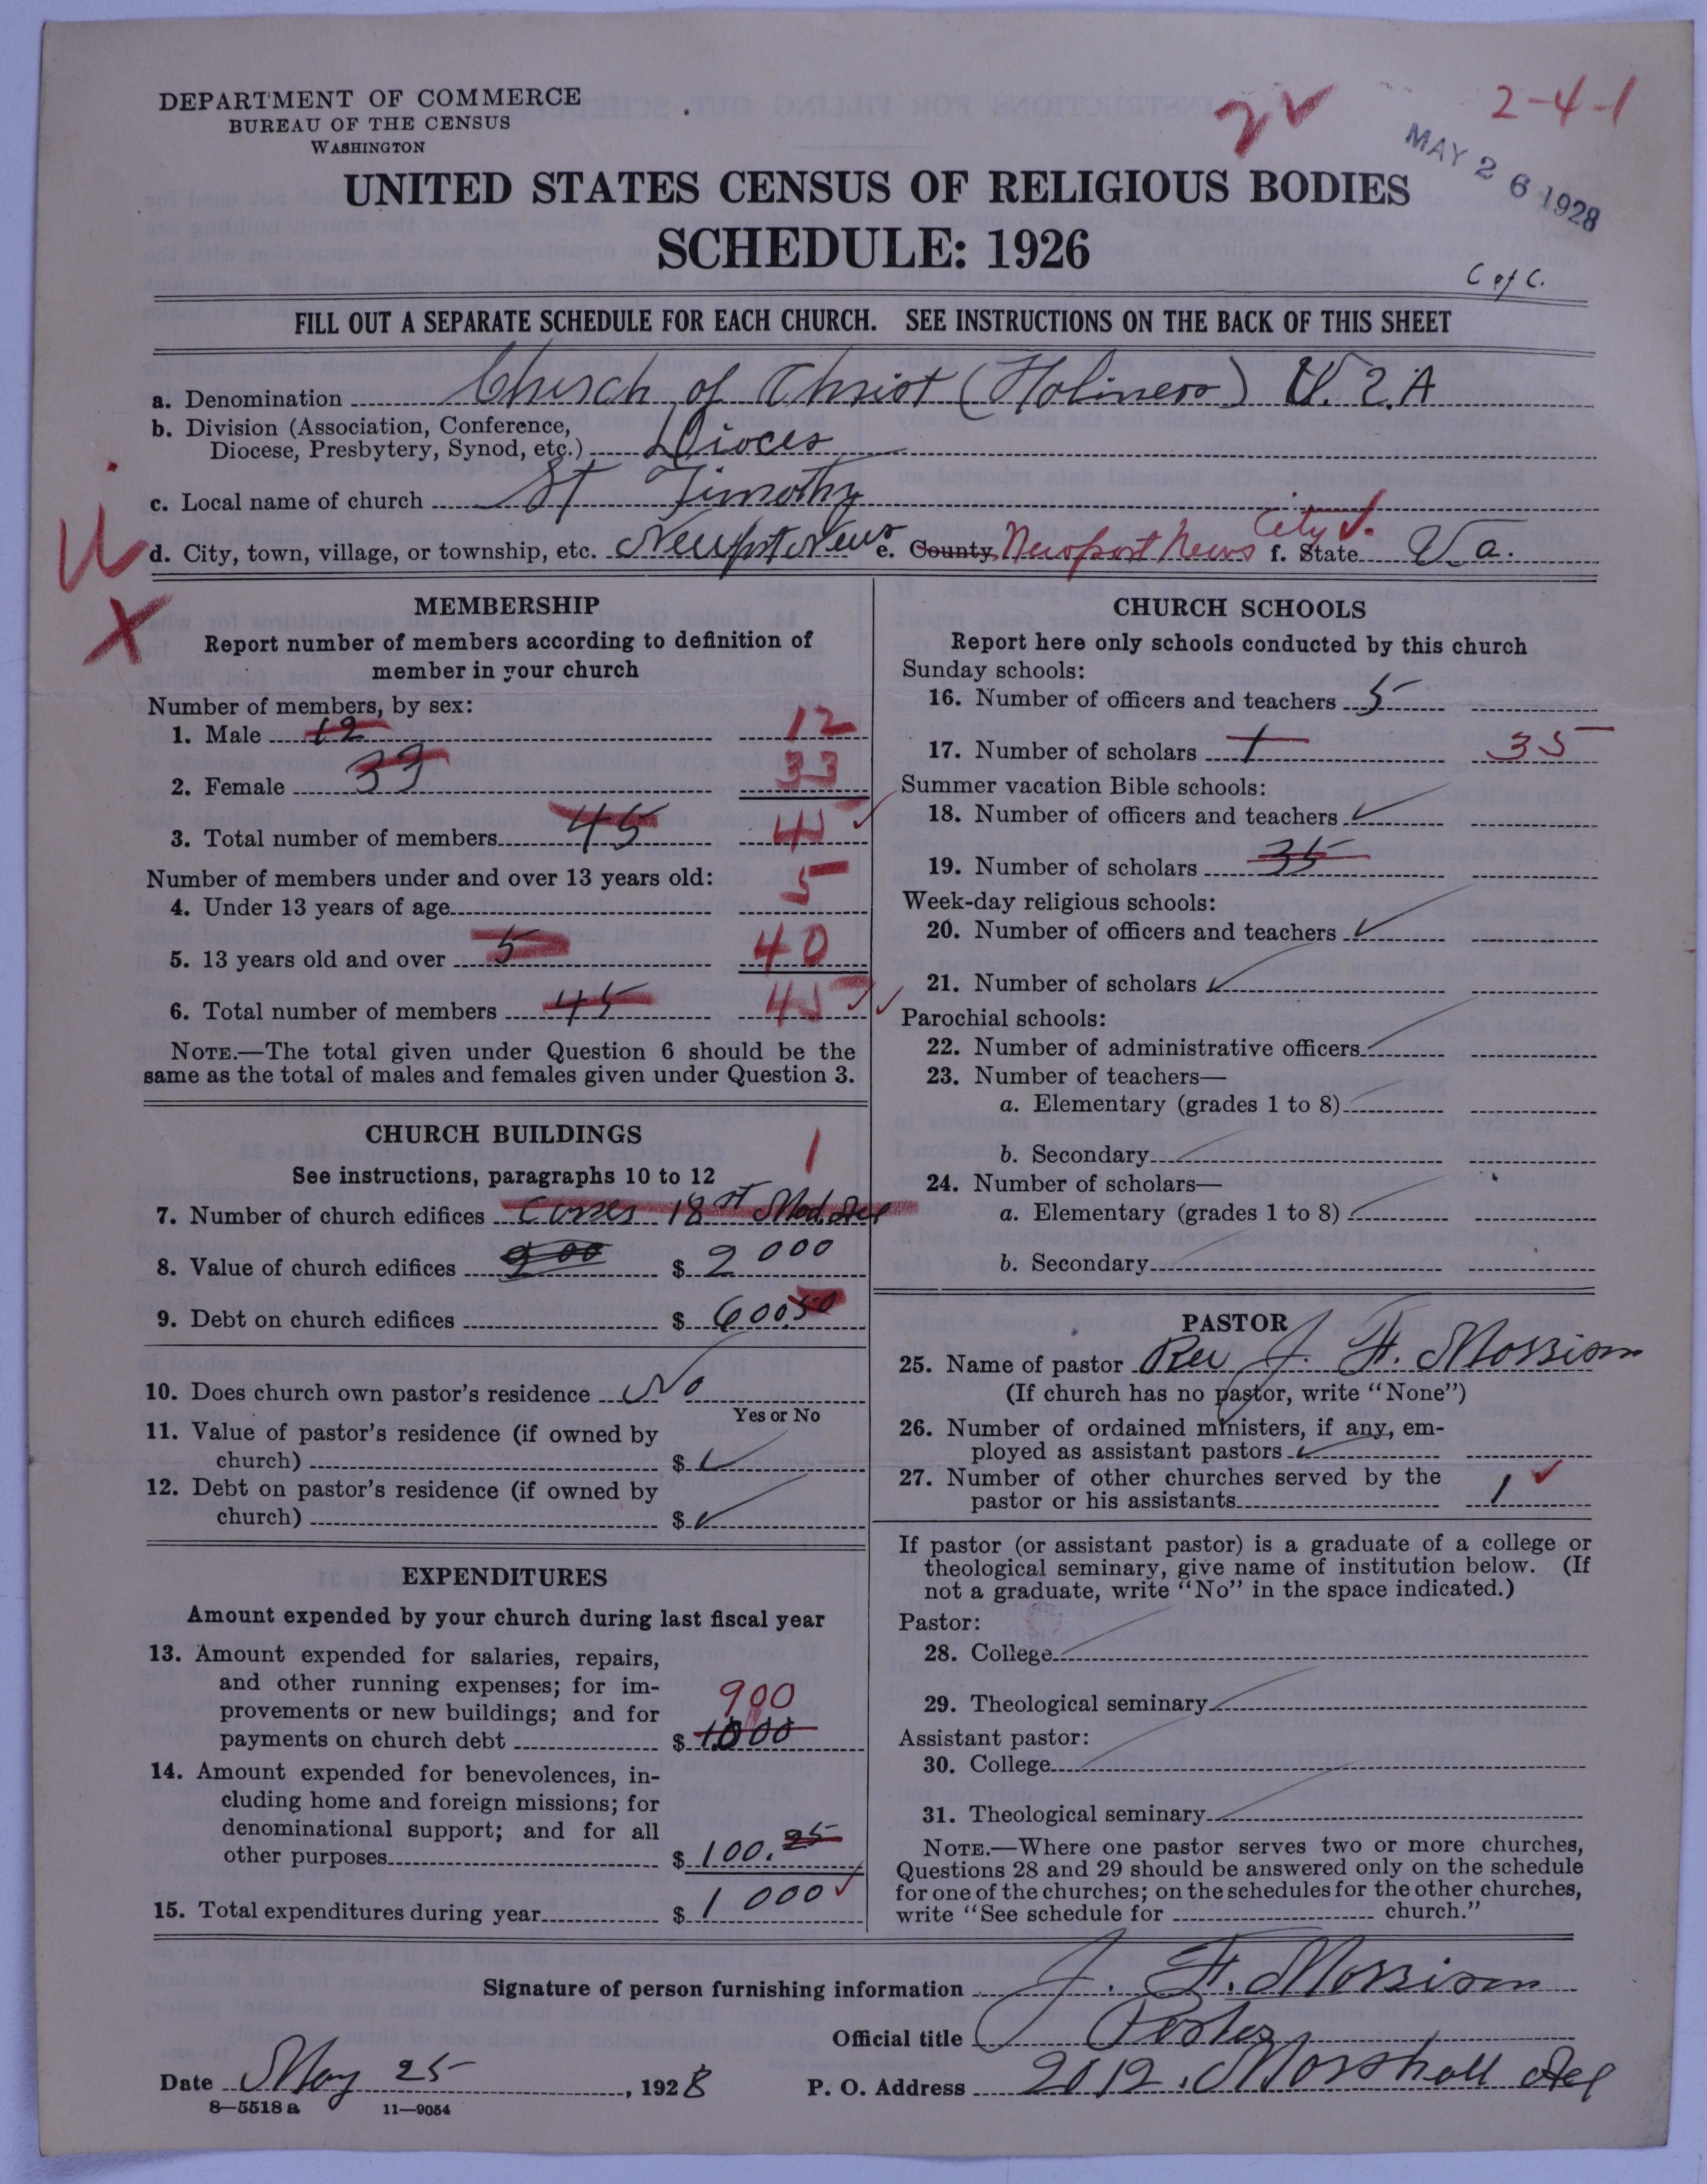 DEPARTMENT OF COMMERCE
BUREAU OF THE CENSUS
WASHINGTON
2-4-1
MAY 26 1928
UNITED STATES CENSUS OF RELIGIOUS BODIES
SCHEDULE: 1926
C of C.
FILL OUT A SEPARATE SCHEDULE FOR EACH CHURCH. SEE INSTRUCTIONS ON THE BACK OF THIS SHEET
a. Denomination Church of Christ (Holiness) U.S.A
b. Division (Association, Conference,
Diocese, Presbytery, Synod, etc.) Dioces
c. Local name of church St Timothy
d. City, town, village, or township, etc. Newport News e. County Newport News City f. State Va.
MEMBERSHIP
Report number of members according to definition of
member in your church
Number of members, by sex:
1. Male 12 12
2. Female 33 33
3. Total number of members 45 45
Number of members under and over 13 years old:
4. Under 13 years of age 5
5. 13 years old and over 5 40
6. Total number of members 45 45
NOTE.—The total given under Question 6 should be the
same as the total of males and females given under Question 3.
CHURCH BUILDINGS
See instructions, paragraphs 10 to 12
1
7. Number of church edifices Corner 18st Mad. Ave
8. Value of church edifices 900 $ 2000
9. Debt on church edifices $ 600.50
10. Does church own pastor's residence No
Yes or No
11. Value of pastor's residence (if owned by
church) $
12. Debt on pastor's residence (if owned by
church) $
EXPENDITURES
Amount expended by your church during last fiscal year
13. Amount expended for salaries, repairs,
and other running expenses; for im-
provements or new buildings; and for
900
payments on church debt $ 1000
14. Amount expended for benevolences, in-
cluding home and foreign missions; for
denominational support; and for all
other purposes $ 100.25
15. Total expenditures during year $ 1000
CHURCH SCHOOLS
Report here only schools conducted by this church
Sunday schools:
16. Number of officers and teachers 5
17. Number of scholars 1 35
Summer vacation Bible schools:
18. Number of officers and teachers
19. Number of scholars 35
Week-day religious schools:
20. Number of officers and teachers
21. Number of scholars
Parochial schools:
22. Number of administrative officers
23. Number of teachers—
a. Elementary (grades 1 to 8)
b. Secondary
24. Number of scholars—
a. Elementary (grades 1 to 8)
b. Secondary
PASTOR
25. Name of pastor Rev J. H. Morrison
(If church has no pastor, write "None")
26. Number of ordained ministers, if any, em-
ployed as assistant pastors
27. Number of other churches served by the
pastor or his assistants 1
If pastor (or assistant pastor) is a graduate of a college or
theological seminary, give name of institution below. (If
not a graduate, write "No" in the space indicated.)
Pastor:
28. College
29. Theological seminary
Assistant pastor:
30. College
31. Theological seminary
NOTE.—Where one pastor serves two or more churches,
Questions 28 and 29 should be answered only on the schedule
for one of the churches; on the schedules for the other churches,
write "See schedule for church."
Signature of person furnishing information J. H. Morrison
Official title Paster
Date May 25, 1928 P. O. Address 2012. Marshall Ave
8—5518 a 11—9054